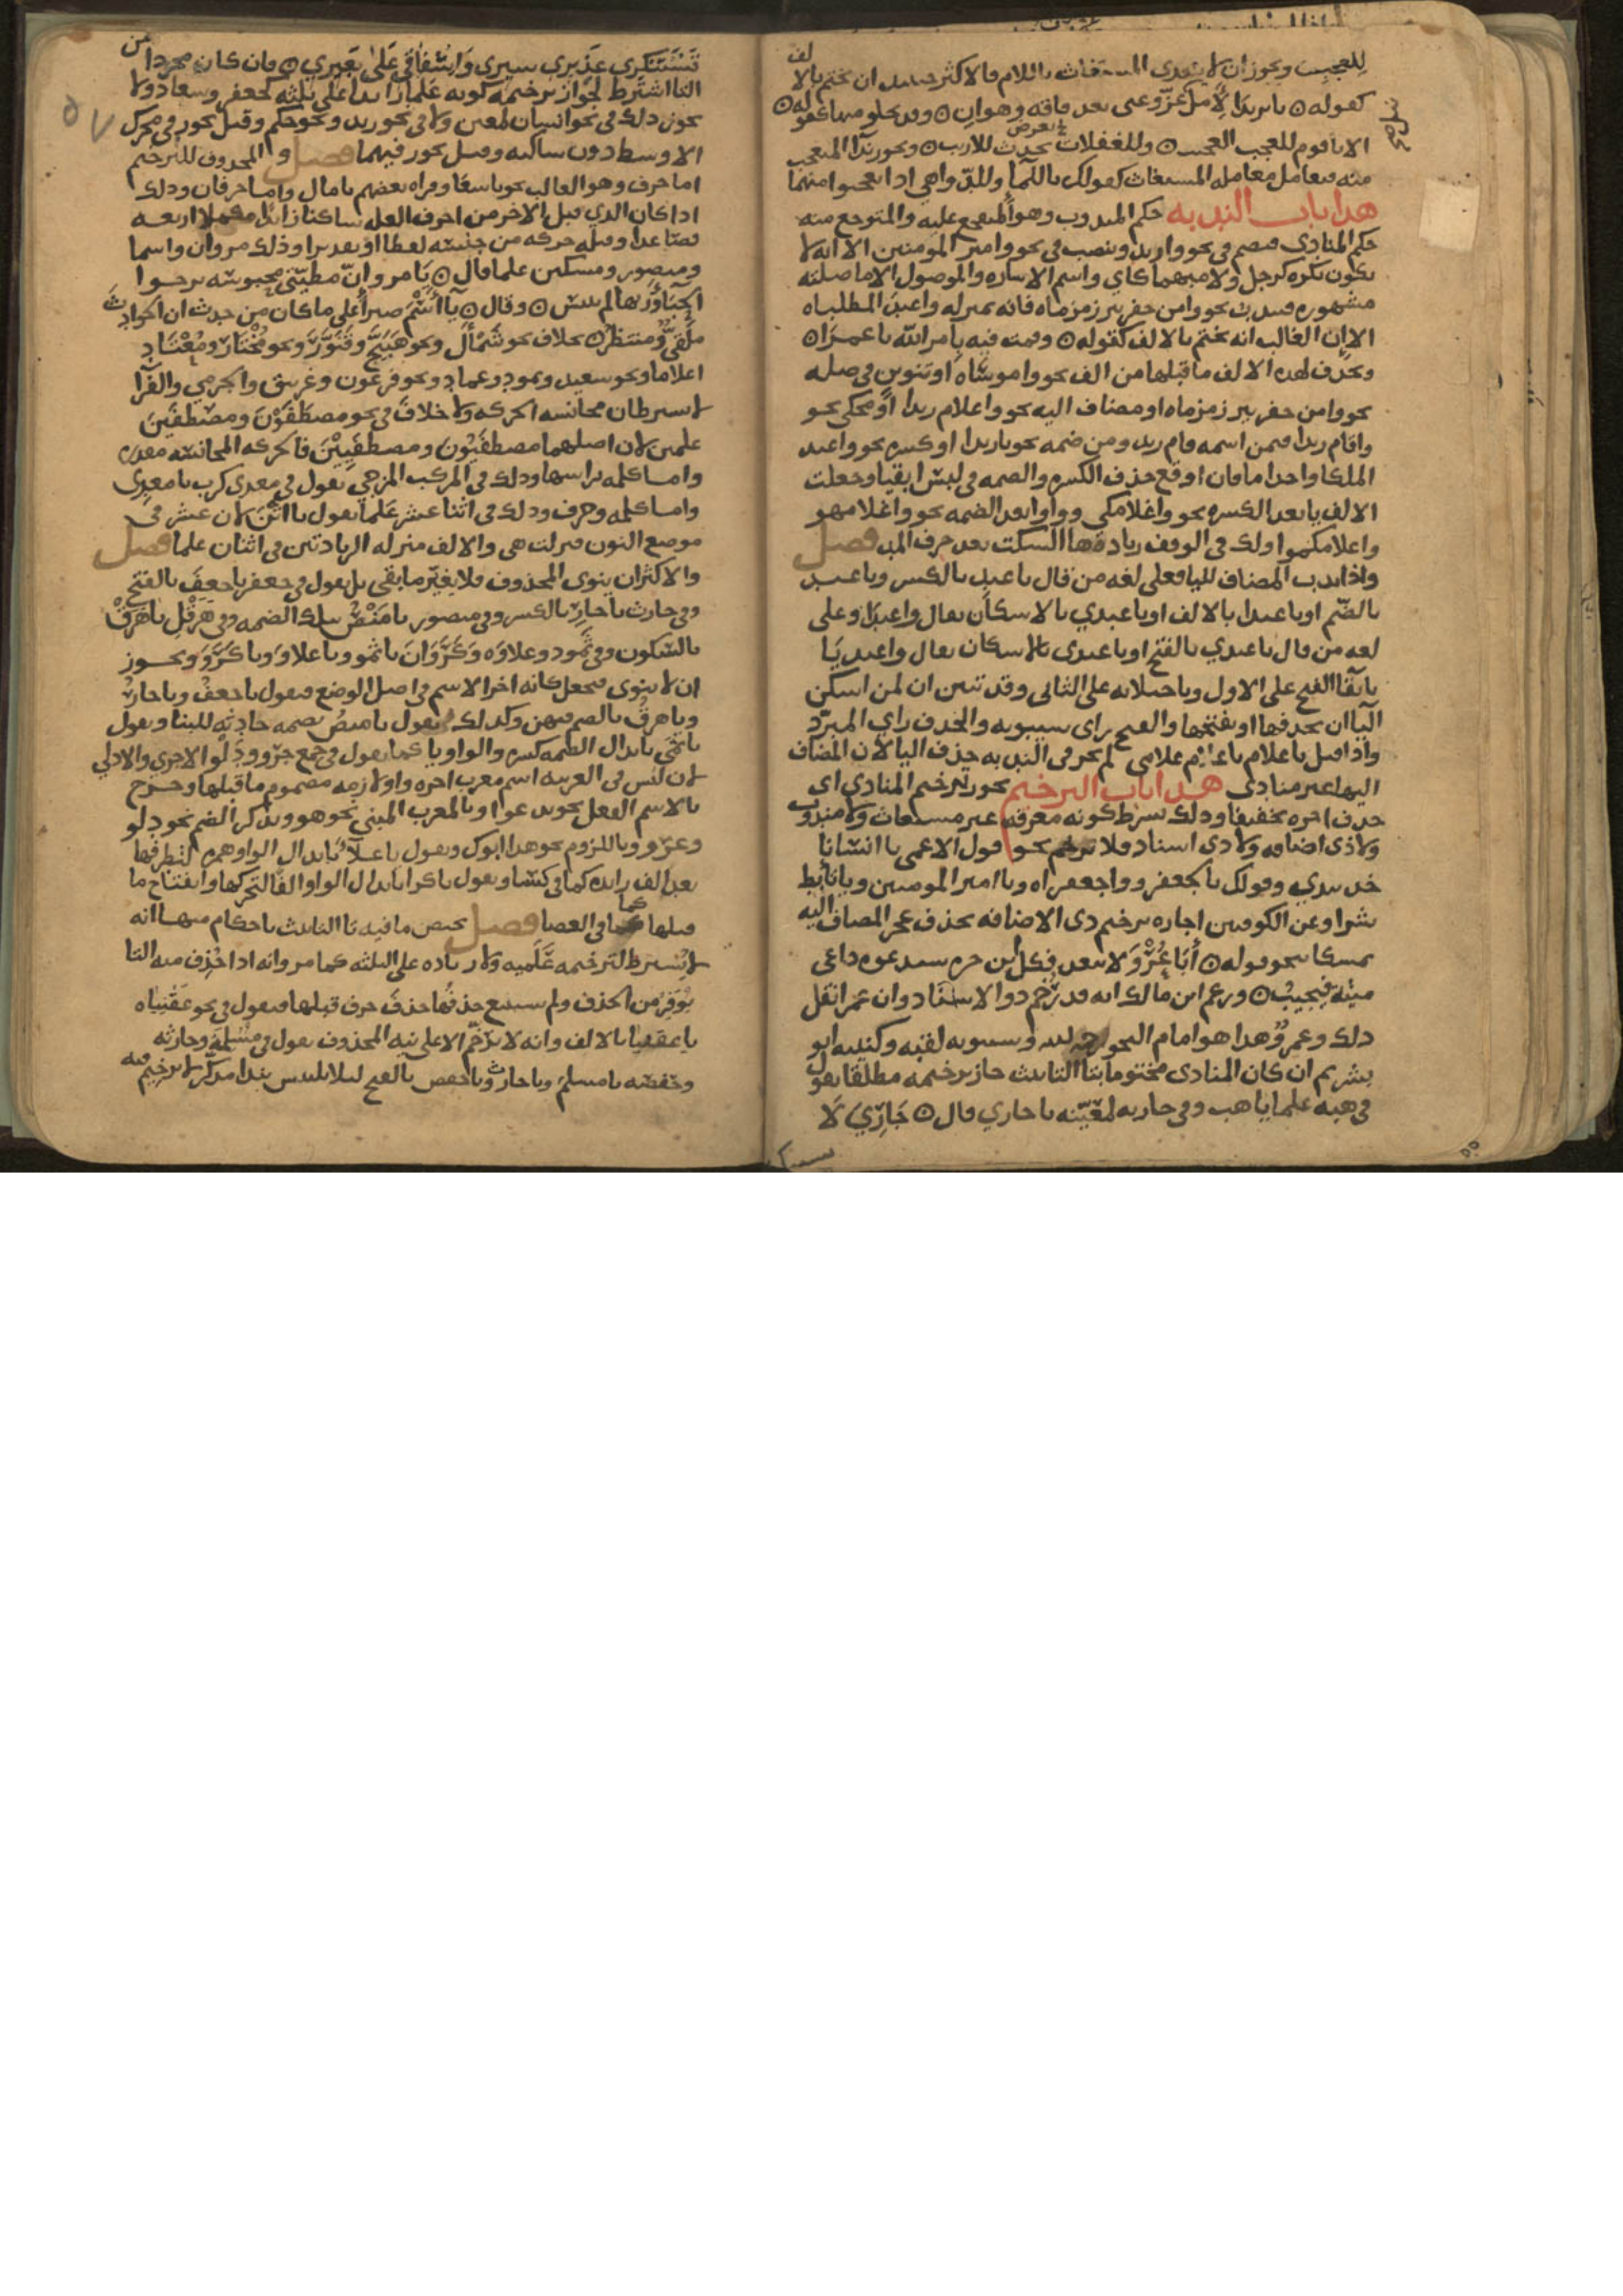 للعجب ويجوز ان لا يبتدى المستغاث باللام فالاكثر حينئذ ان يختم بالالف
كقوله ۞ يا يزيدا لآمل عز وغنى بعد فاقة وهوان ۞ وقد يخلو منهما كقوله ۞
الا يا قوم للعجب العجيب ۞ وللغفلات تعرض للاريب ۞ ويجوز ندا المتعجب
منه فيعامل معاملة المستغاث كقولك ياللما وللدواهي اذا تعجبوا منهما
هذا باب الندبه حكم المندوب وهو المتفجع عليه والمتوجع منه
حكم المنادى فيضم في نحو وازيد وينصب في نحو وا امير المومنين الا انه لا
يكون نكره كرجل ولا مبهما كاي واسم الاشاره والموصول الا ما صلته
مشهوره فيندب نحو وامن حفر بير زمزماه فانه بمنزله واعبد المطلباه
الا ان الغالب انه يختم بالالف كقوله ۞ وقمت فيه بامر الله يا عمرا ۞
ويحذف لهذه الالف ما قبلها من الف نحو واموساه او تنوين في صله
نحو وامن حفر بير زمزماه او مضاف اليه نحو واغلام زيدا او محكي نحو
واقام زيدا فيمن اسمه قام زيد ومن ضمه نحو يازيدا او كسره نحو واعبد
الملكا واحذاما فان اوقع حذف الكسره والضمه في لبس ابقيا وجعلت
الالف يا بعد الكسره نحو واغلامكي وواوا بعد الضمه نحو واغلامهو
واغلامكمو ولك في الوقف زيادة ها السكت بعد حرف المد فصل
واذا ندب المضاف لليا فعلى لغه من قال يا عبد بالكسر ويا عبد
بالضم او يا عبدا بالالف او يا عبدي بالاسكان يقال واعبدا وعلى
لغه من قال يا عبدي بالفتح او يا عبدي بالاسكان يقال واعبديا
بابقا الفتح على الاول وباجتلابه على الثاني وقد تبين ان لمن اسكن
اليا ان يحذفها او يفتحها والفتح راي سيبويه والحذف راي المبرد
واذا قيل يا غلام غلامي لم يجز في الندبه حذف اليا لان المضاف
اليها غير منادى هذا باب الترخيم يجوز ترخيم المنادى اي
حذف اخره تخفيفا وذلك بشرط كونه معرفه غير مستغاث ولا مندوب
ولا ذي اضافه ولا ذي اسناد فلا ترخم نحو قول الاعمى يا انسانا
خذ بيدي وقولك يا لجعفر وواجعفراه ويا امير المومنين ويا تابط
شرا وعن الكوفيين اجازه ترخيم ذي الاضافه بحذف عجز المضاف اليه
تمسكا بنحو قوله ۞ أَبَا عُرْوَ لا تبعد فكل ابن حره سيدعوه داعي
ميته فيجيب ۞ وزعم ابن مالك انه قد يرخم ذو الاسناد وان عمرا نقل
ذلك وعمرو هذا هو امام النحو رحمه الله وسيبويه لقبه وكنيته ابو
بشر ثم ان كان المنادى مختوما بتا التانيث جاز ترخيمه مطلقا تقول
في هبه علما يا هب وفي جاريه لمعينه يا جاري قال ۞ جَارِيَ لَا
تَسْتَنْكِرِي عَذِيرِي سيري وَإِشْفَاقي عَلَى بَعِيرِي ۞ وان كان مجردا عن
التا اشترط لجواز ترخيمه كونه علما زايدا على ثلثه كجعفر وسعاد ولا
يجوز ذلك في نحو انسان لمعين ولا في نحو زيد ونحو حكم وقيل يجوز في محرك
الاوسط دون ساكنه وقيل يجوز فيهما فصل والمحذوف للترخيم
اما حرف وهو الغالب نحو يا سعا وقراه بعضهم يا مال واما حرفان وذلك
اذا كان الذي قبل الاخر من احرف العله ساكنا زايدا مكملا اربعه
فصاعدا وقبله حركه من جنسه لفظا او تقديرا وذلك مروان واسما
ومنصور ومسكين علما قال ۞ يا مرو ان مطيتي محبوسه ترجوا
الحباء وربها لم ييئس ۞ وقال ۞ يا اسم صبرا على ما كان من حدث ان الحوادث
ملقي ومنتظر ۞ بخلاف نحو شَمْأَل ونحو هَبَيَّخ وقَنَوَّر ونحو مختار ومنقاد
اعلاما ونحو سعيد وثمود وعماد ونحو فرعون وغرنيق والجرمي والفرا
لا يشترطان مجانسه الحركه ولا خلاف في نحو مصطفَوْن ومصطفَين
علمين لان اصلهما مصطفَيُون ومصطفَيِيْن فالحركه المجانسه مقدره
واما كلمه براسها وذلك في المركب المزجي تقول في معدي كرب يا معدي
واما كلمه وحرف وذلك في اثنا عشر علما تقول يا اثن لان عشر في
موضع النون فنزلت هي والالف منزله الزيادتين في اثنان علما فصل
والاكثر ان ينوى المحذوف فلا يغير ما بقي بل يقول في جعفر يا جعف بالفتح
وفي حارث يا حار بالكسر وفي منصور يا منص بتلك الضمه وفي هرقل يا هرق
بالسكون وفي ثمود وعلاوه وكَرَوَان يا ثمو ويا علاو ويا كرو ويجوز
ان لا ينوى فيجعل كانه اخر الاسم في اصل الوضع فيقول يا جعفُ ويا حارُ
ويا هرقُ بالضم فيهن وكذلك يقول يا منصُ بضمه حادثه للبنا ويقول
يا ثمي بابدال الضمه كسره والواو يا كما يقول في جمع جرو ودلو الاجري والادلي
لان ليس في العربيه اسم معرب اخره واو لازمه مضموم ما قبلها وخرج
بالاسم الفعل نحو يدعوا وبالمعرب المبني نحو هو وبذكر الضم نحو دلو
وغزو وباللزوم نحو هذا ابوك ويقول يا علاء بابدال الواو همزه لتطرفها
بعد الف زايده كما في كسا ويقول يا كرا بابدال الواو الفا لتحركها وانفتاح ما
قبلها كما في العصا فصل يختص ما فيه تا التانيث باحكام منها انه
لا يشترط لترخيمه علميه ولا زياده على الثلثه كما مر وانه اذا حذف منه التا
توفر من الحذف ولم يستتبع حذفها حذف حرف قبلها فيقول في نحو عقنباه
يا عقنبا بالالف وانه لا يرخم الا على نيه المحذوف يقول في مسلمه وحارثه
وحفصه يا مسلم ويا حارث ويا حفص بالفتح ليلا يلتبس بندا مذكر لا ترخيم فيه